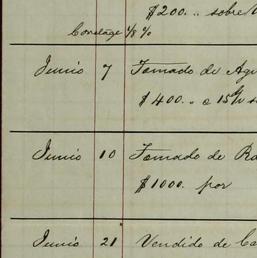 $200. „ sobre
Corretage 1/8 %
Junio 7 Tomado de
$400. „ a 15
Junio 10 Tomado de
$1000. por
Junio 21 Vendido de